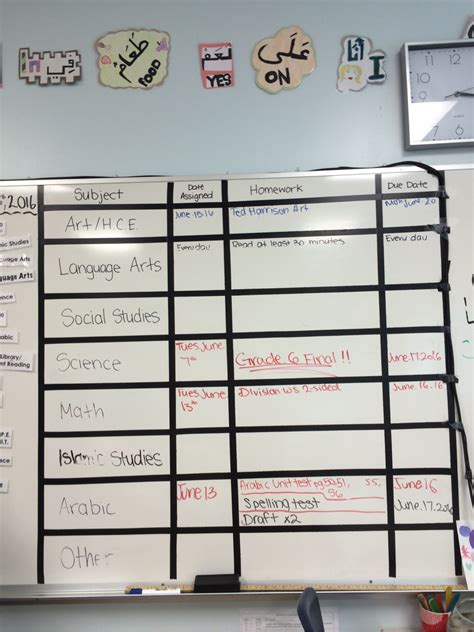 في
طَعَام
FOOD
نَعَم
YES
عَلَى
ON
أنا
I
11 12 1
10 2
9 3
2016
Subject
Date Assigned
Homework
Due Date
Art/H.C.E.
June 15.16
Ted Harrison Art
Mon June 20
Studies
Language Arts
Every day
Read at least 30 minutes
Every day
Social Studies
Science
Tues June 7th
Grade 6 Final !!
June.17.2016
Math
Tues June 13th
Division ws 2-sided
June.16.16
Islamic Studies
Arabic
June 13
Arabic Unit test pg 50, 51, 55, 56
June 16
Spelling test
June.17.2016
Draft x2
Other